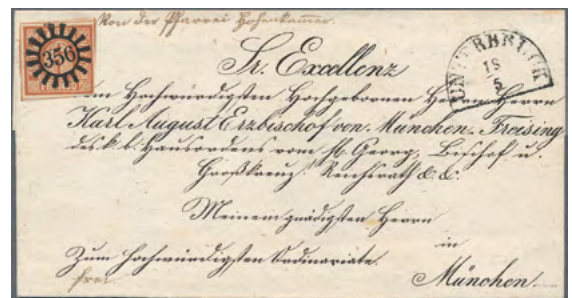 Von der Pfarrei Hohenkammer.
356
UNTERBRUCK
18
5
Sr. Excellenz
dem Hochwürdigsten Hochgebornen Herrn Herrn
Karl August Erzbischof von München-Freising
des k. b. Hausordens vom St. Georg, Bischof u.
Großkreuz. Reichsrath &. &.
Meinem gnädigsten Herrn
in
Zum Hochwürdigsten Ordinariate.
frei
München.